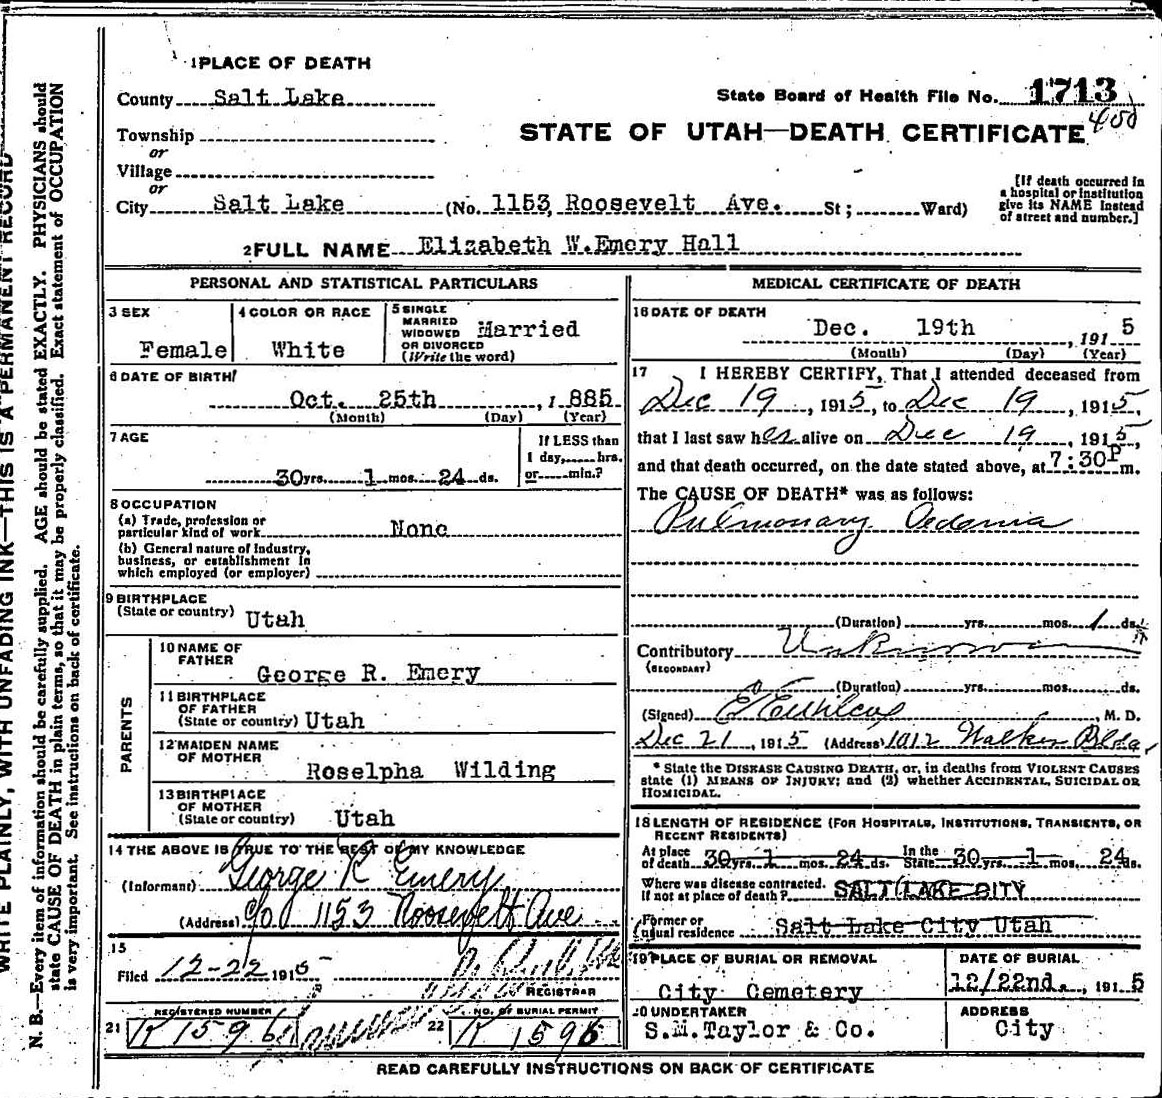 WRITE PLAINLY, WITH UNFADING INK—THIS IS A PERMANENT RECORD
N. B.—Every item of information should be carefully supplied. AGE should be stated EXACTLY. PHYSICIANS should
state CAUSE OF DEATH in plain terms, so that it may be properly classified. Exact statement of OCCUPATION
is very important. See instructions on back of certificate.
1 PLACE OF DEATH
County Salt Lake
State Board of Health File No. 1713
400
Township
or
Village
or
STATE OF UTAH—DEATH CERTIFICATE
City Salt Lake (No. 1153 Roosevelt Ave. St; Ward)
[If death occurred in
a hospital or institution
give its NAME instead
of street and number.]
2 FULL NAME Elizabeth W. Emery Hall
PERSONAL AND STATISTICAL PARTICULARS
3 SEX
Female
4 COLOR OR RACE
White
5 SINGLE
MARRIED
WIDOWED
OR DIVORCED
(Write the word)
Married
6 DATE OF BIRTH
Oct. 25th, 1885
(Month) (Day) (Year)
7 AGE
30 yrs. 1 mos. 24 ds.
If LESS than
1 day, hrs.
or min.?
8 OCCUPATION
(a) Trade, profession or
particular kind of work None
(b) General nature of industry,
business, or establishment in
which employed (or employer)
9 BIRTHPLACE
(State or country) Utah
PARENTS
10 NAME OF
FATHER
George R. Emery
11 BIRTHPLACE
OF FATHER
(State or country) Utah
12 MAIDEN NAME
OF MOTHER
Roselpha Wilding
13 BIRTHPLACE
OF MOTHER
(State or country) Utah
14 THE ABOVE IS TRUE TO THE BEST OF MY KNOWLEDGE
(Informant) George R Emery
(Address) c/o 1153 Roosevelt Ave
15
Filed 12-22 1915
REGISTRAR
REGISTERED NUMBER
21 K 1596
NO. OF BURIAL PERMIT
22 K 1596
MEDICAL CERTIFICATE OF DEATH
16 DATE OF DEATH
Dec. 19th, 1915
(Month) (Day) (Year)
17 I HEREBY CERTIFY, That I attended deceased from
Dec 19, 1915, to Dec 19, 1915,
that I last saw her alive on Dec 19, 1915,
and that death occurred, on the date stated above, at 7:30P m.
The CAUSE OF DEATH* was as follows:
Pulmonary Oedema
(Duration) yrs. mos. 1 ds.
Contributory Unknown
(SECONDARY)
(Duration) yrs. mos. ds.
(Signed) M. D.
Dec 21, 1915 (Address) 1012 Walker Bldg,
* State the DISEASE CAUSING DEATH, or, in deaths from VIOLENT CAUSES
state (1) MEANS OF INJURY; and (2) whether ACCIDENTAL, SUICIDAL OR
HOMICIDAL.
18 LENGTH OF RESIDENCE (FOR HOSPITALS, INSTITUTIONS, TRANSIENTS, OR
RECENT RESIDENTS)
At place
of death 30 yrs. 1 mos. 24 ds. In the
State 30 yrs. 1 mos. 24 ds.
Where was disease contracted.
If not at place of death? SALT LAKE CITY
Former or
usual residence Salt Lake City Utah
19 PLACE OF BURIAL OR REMOVAL
City Cemetery
DATE OF BURIAL
12/22nd., 1915
20 UNDERTAKER
S.M.Taylor & Co.
ADDRESS
City
READ CAREFULLY INSTRUCTIONS ON BACK OF CERTIFICATE